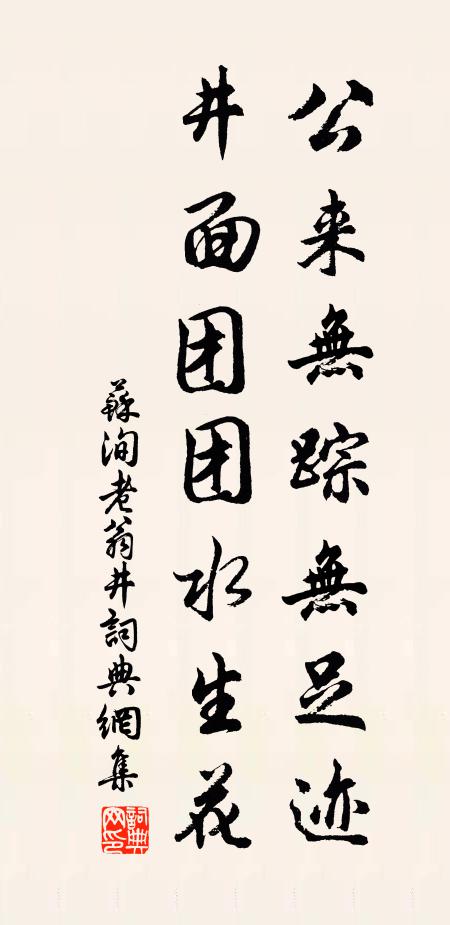 公来無踪無足迹
井面团团水生花
蘇洵老翁井詞典網集
詞典网印